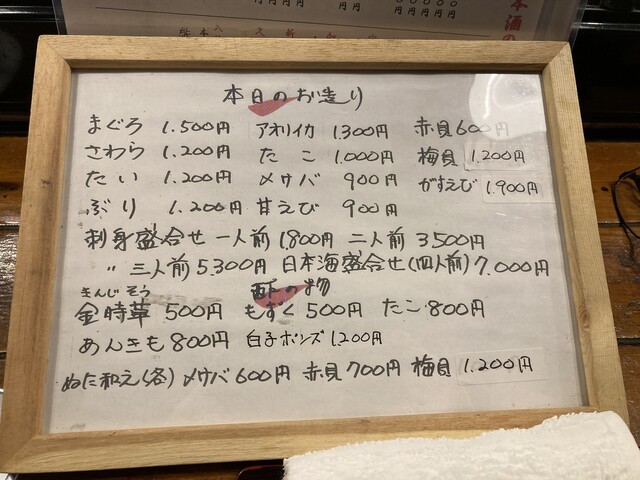 本日のお造り
まぐろ 1.500円 アオリイカ 1300円 赤貝 600円
さわら 1.200円 たこ 1.000円 梅貝 1.200円
たい 1.200円 〆サバ 900円 がすえび 1.900円
ぶり 1.200円 甘えび 900円
刺身盛合せ 一人前 1,800円 二人前 3500円
〃 三人前 5.300円 日本海盛合せ(四人前) 7.000円
きんじそう 酢の物
金時草 500円 もずく 500円 たこ 800円
あんきも 800円 白子ポンズ 1,200円
ぬた和え(各) 〆サバ 600円 赤貝 700円 梅貝 1.200円